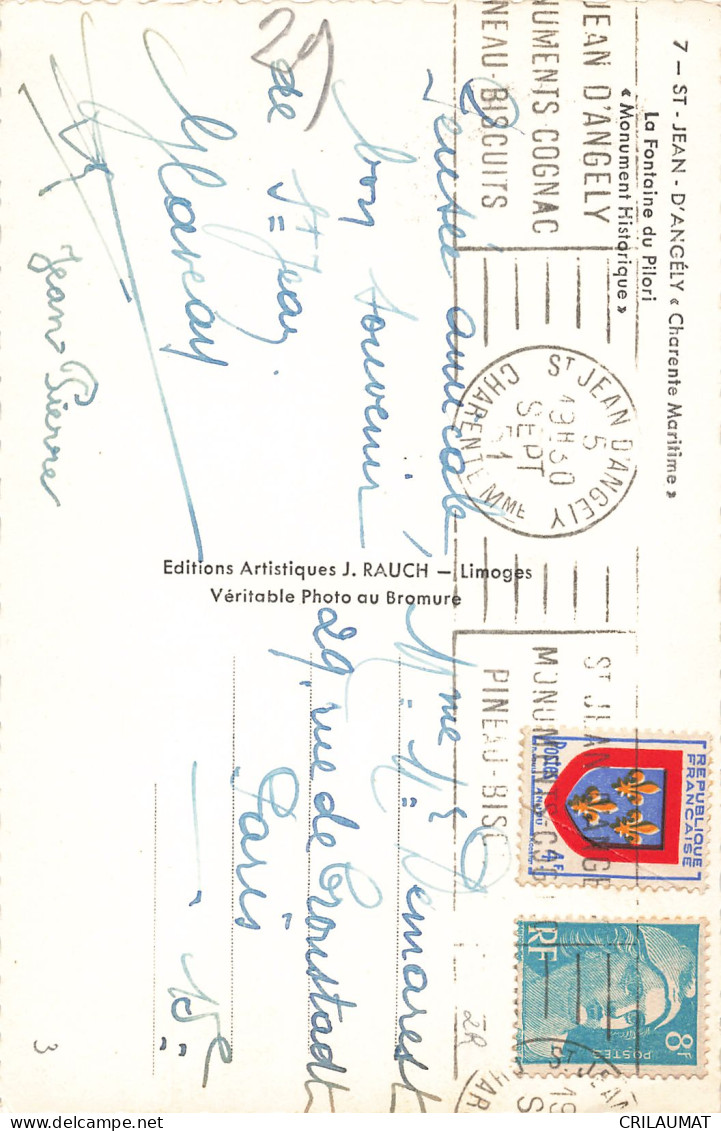 7 — ST - JEAN - D'ANGÉLY « Charente Maritime »
La Fontaine du Pilori
« Monument Historique »
JEAN D'ANGELY
NUMENTS COGNAC
NEAU-BISCUITS
ST JEAN D'ANGELY
19H30
5
SEPT
51
CHARENTE MME
ST JEAN D'ANGE
MONUMENTS COG
PINEAU-BISC
REPUBLIQUE
FRANÇAISE
Postes
ANJOU
4F
RF
POSTES
8F
ST JEAN
CHAR
29
amicale
bon souvenir
de St Jean
Jean Pierre
Editions Artistiques J. RAUCH — Limoges
Véritable Photo au Bromure
Mme Demarest
29, rue de Cronstadt
Paris
— 15e
2R
3
CRILAUMAT